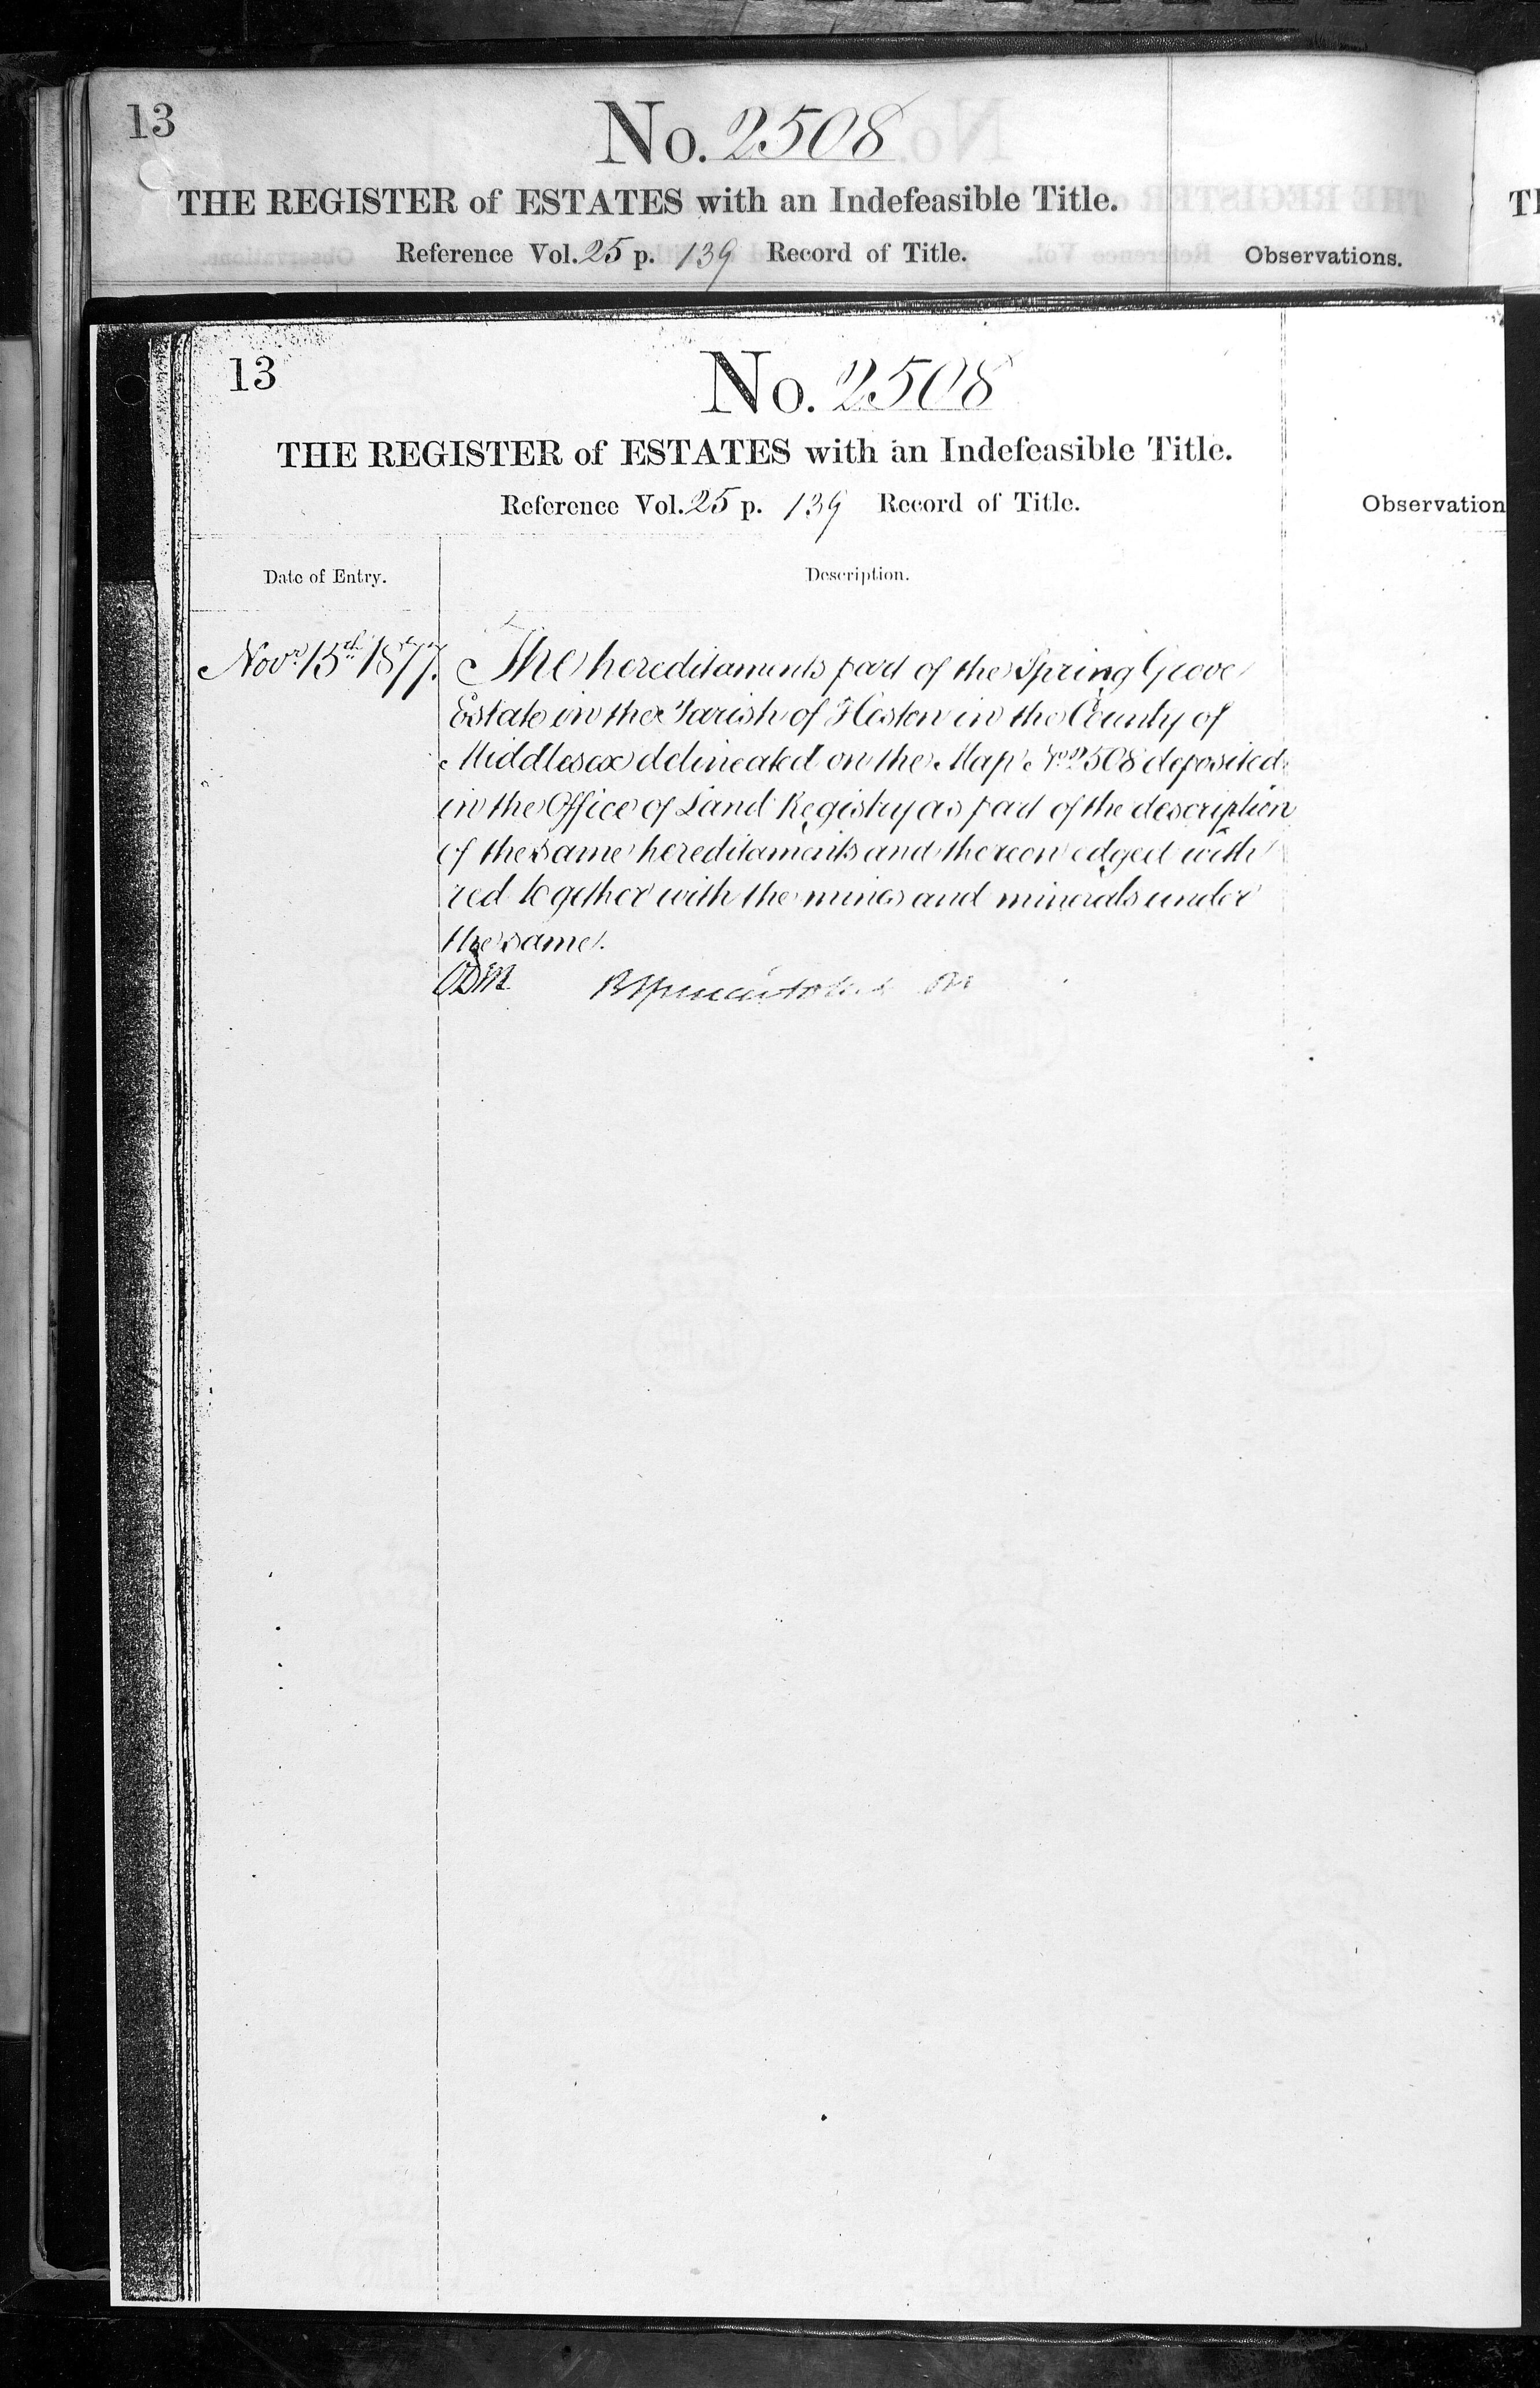 13
No. 2508
THE REGISTER of ESTATES with an Indefeasible Title.
Reference Vol. 25 p. 139 Record of Title.
Observations.
13
No. 2508
THE REGISTER of ESTATES with an Indefeasible Title.
Reference Vol. 25 p. 139 Record of Title.
Observation
Date of Entry.
Description.
Novr. 15th 1877.
The hereditaments part of the Spring Grove
Estate in the Parish of Heston in the County of
Middlesex delineated on the Map No. 2508 deposited
in the Office of Land Registry as part of the description
of the same hereditaments and thereon edged with
red together with the mines and minerals under
the same.